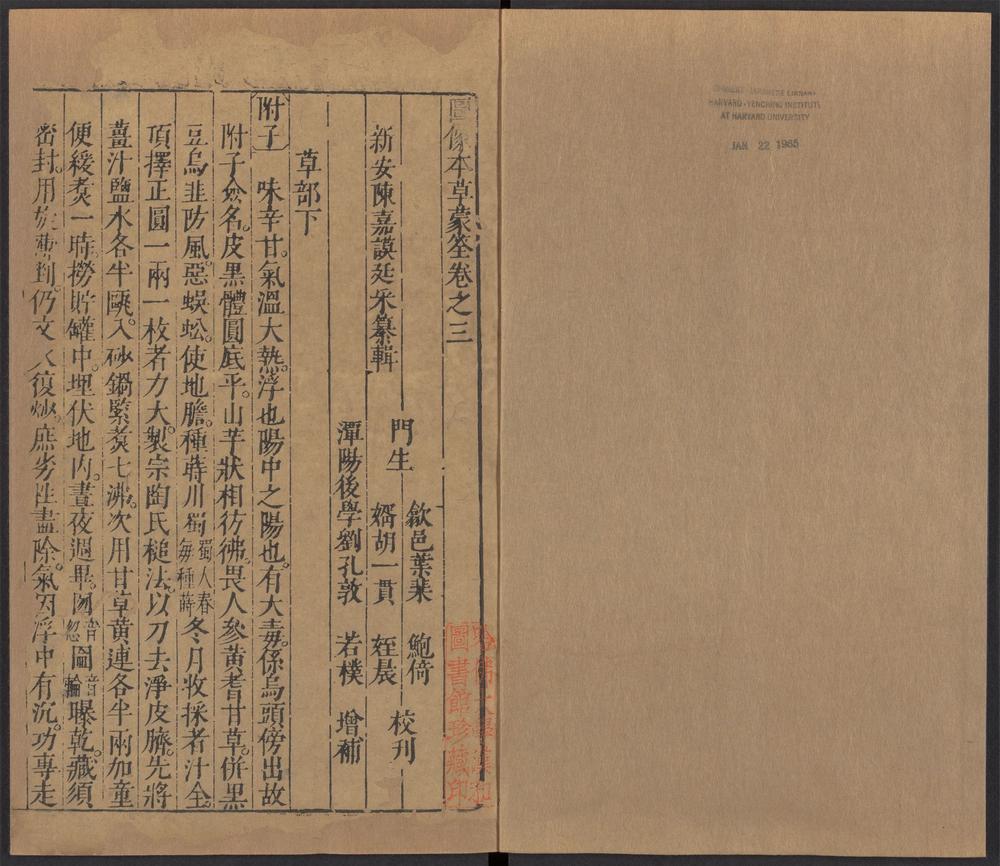 圖像本草蒙筌卷之三
新安陳嘉謨廷采纂輯
門生
歙邑葉棐 鮑倚
婿胡一貫 姪晨
校刊
潭陽後學劉孔敦 若樸 增補
草部下
附子 味辛甘。氣溫大熱。浮也陽中之陽也。有大毒。係烏頭傍出故
附子僉名。皮黑體圓底平。山芋狀相彷彿。畏人參黃耆甘草。併黑
豆烏韭防風。惡蜈蚣。使地膽。種蒔川蜀蜀人春每種蒔冬月收採者汁全。
頂擇正圓一兩一枚者力大。製宗陶氏槌法。以刀去淨皮臍。先將
薑汁鹽水各半甌。入砂鍋緊煑七沸。次用甘草黃連各半兩加童
便緩煑一時。撈貯罐中。埋伏地內。晝夜週畢。囫音忽圇音輪曝乾。藏須
密封。用旋剉。仍文火復炒。庶劣性盡除。氣因浮中有沉。功專走
哈佛大學漢和圖書館珍藏印
HARVARD-YENCHING INSTITUTE
AT HARVARD UNIVERSITY
JAN 22 1965